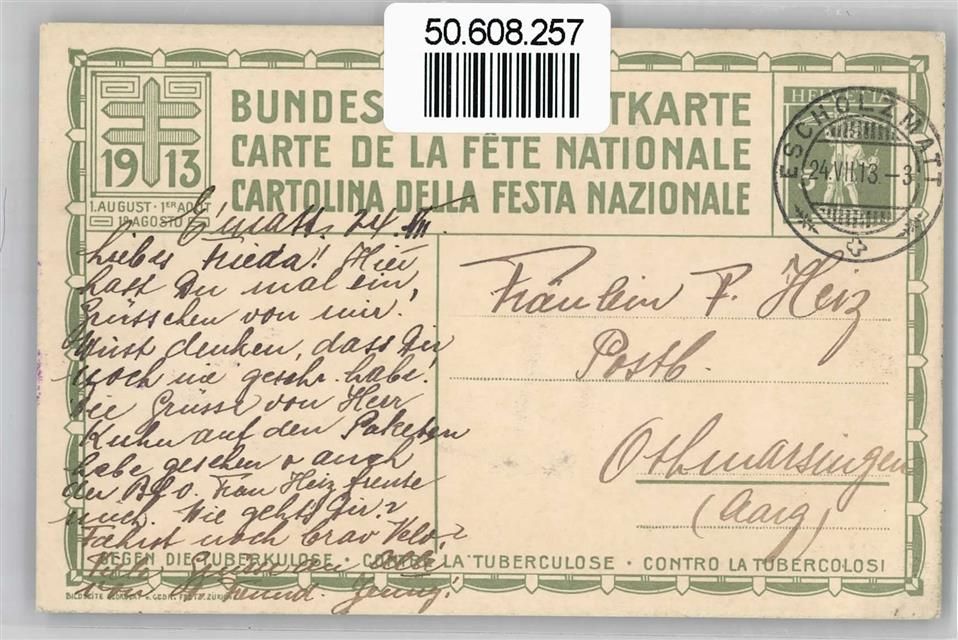 50.608.257
BUNDES TKARTE
CARTE DE LA FÊTE NATIONALE
CARTOLINA DELLA FESTA NAZIONALE
1913
1.AUGUST · 1ER AOÛT
1º AGOSTO
HELVETIA
ESCHOLZMATT
24.VII.13.-3
E'matt, 24. VII.
Liebes Frieda! Hier
hast Du mal ein
Grüsschen von mir.
Musst denken, dass Dir
noch nie geschr. habe.
Die Grüsse von Herr
Kuhn auf den Paketen
habe gesehen & auch
der Frau Heiz freute
mich. Wie geht's Dir?
Fährst noch brav Velo?
Fräulein F. Heiz
Postb.
Othmarsingen
(Aarg)
GEGEN DIE TUBERKULOSE · CONTRE LA TUBERCULOSE · CONTRO LA TUBERCOLOSI
Jenny!